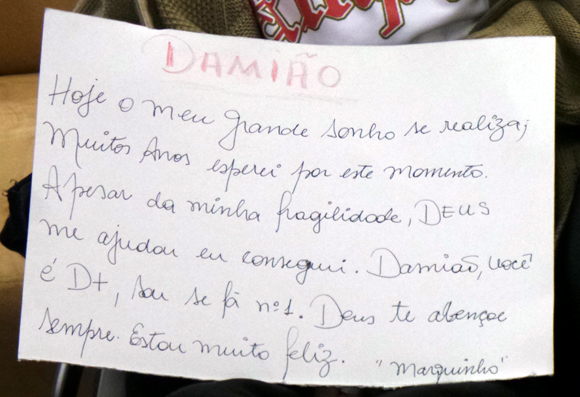 DAMIÃO
Hoje o meu grande sonho se realiza;
Muitos Anos esperei por este momento.
Apesar da minha fragilidade, DEUS
me ajudou eu consegui. Damiaõ, você
é D+, sou se fã nº1. Deus te abençoe
sempre. Estou muito feliz. "Marquinhó"